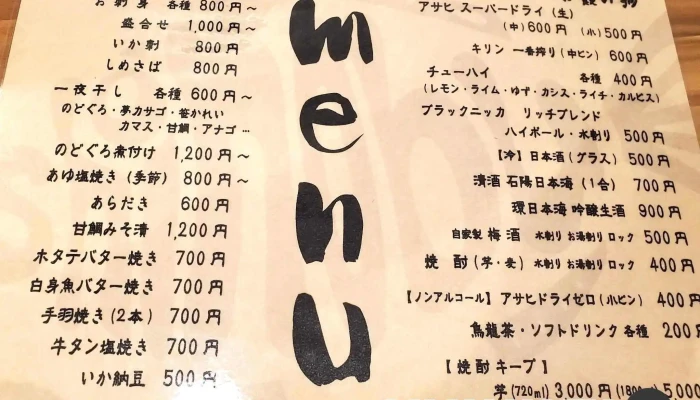 お刺身 各種 800円～
盛合せ 1,000円～
いか刺 800円
しめさば 800円
一夜干し 各種 600円～
のどぐろ・夢カサゴ・笹かれい
カマス・甘鯛・アナゴ…
のどぐろ煮付け 1,200円～
あゆ塩焼き（季節） 800円～
あらだき 600円
甘鯛みそ漬 1,200円
ホタテバター焼き 700円
白身魚バター焼き 700円
手羽焼き（2本） 700円
牛タン塩焼き 700円
いか納豆 500円
menu
アサヒ スーパードライ（生）
（中）600円 （小）500円
キリン 一番搾り（中ビン） 600円
チューハイ 各種 400円
（レモン・ライム・ゆず・カシス・ライチ・カルピス）
ブラックニッカ リッチブレンド
ハイボール・水割り 500円
【冷】日本酒（グラス） 500円
清酒 石陽日本海（1合） 700円
環日本海 吟醸生酒 900円
自家製 梅酒 水割り お湯割り ロック 500円
焼酎（芋・麦） 水割り お湯割り ロック 400円
【ノンアルコール】アサヒドライゼロ（小ビン） 400円
烏龍茶・ソフトドリンク 各種 200円
【焼酎キープ】
芋（720ml）3,000円（1800ml）5,000